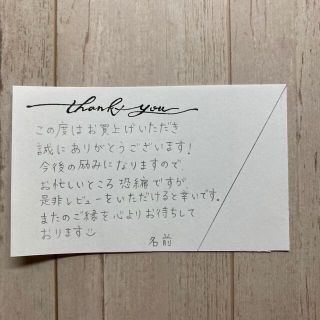 thank you
この度はお買上げいただき
誠にありがとうございます!
今後の励みになりますので
お忙しいところ恐縮ですが
是非レビューをいただけると幸いです。
またのご縁を心よりお待ちして
おります☺
名前